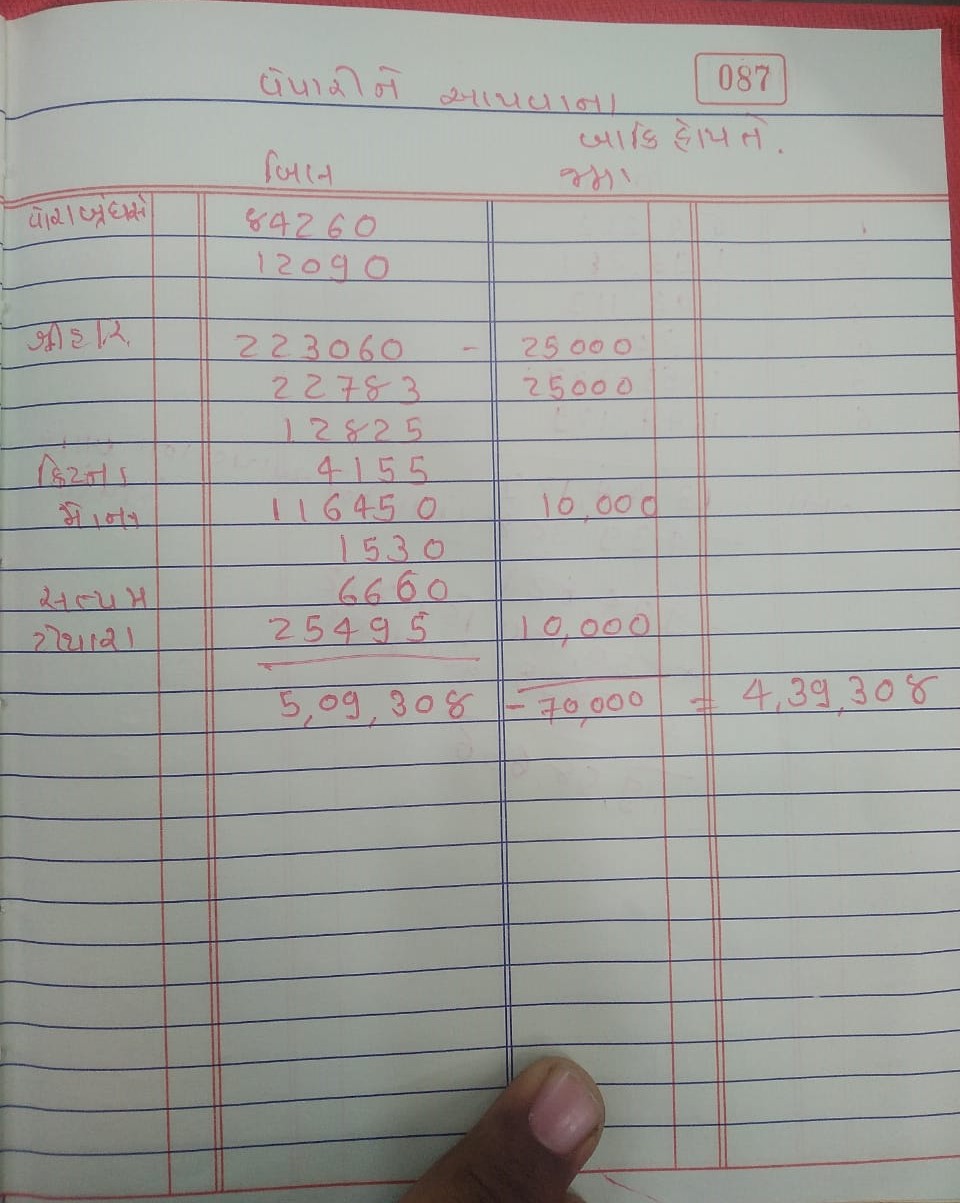 વેપારીને આપવાના 087
બાકિ હોય તે.
બિલ જમા
84260
12090
શ્રીહરિ 223060 - 25000
22783 25000
12825
ક્રિષ્ના 4155
મોમાઇ 116450 10,000
1530
સત્યમ 6660
25495 10,000
5,09,308 - 70,000 = 4,39,308